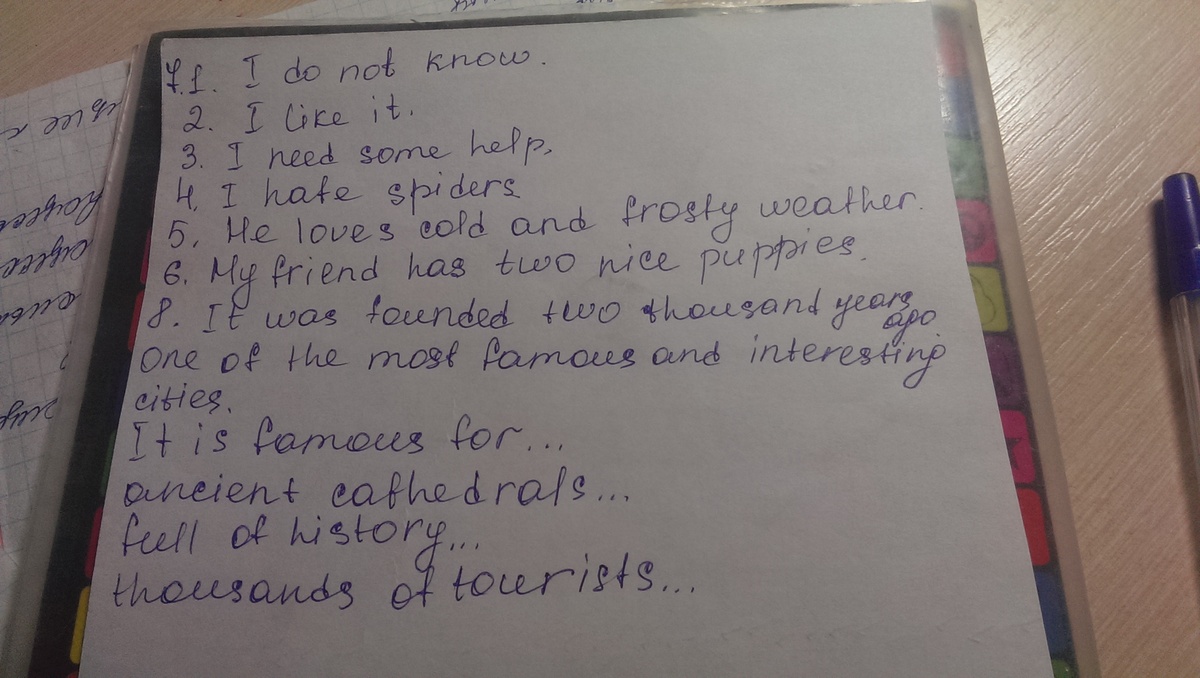 7.1. I do not know.
2. I like it.
3. I need some help.
4. I hate spiders
5. He loves cold and frosty weather.
6. My friend has two nice puppies.
8. It was founded two thousand years
ago
One of the most famous and interesting
cities.
It is famous for...
ancient cathedrals...
full of history...
thousands of tourists...